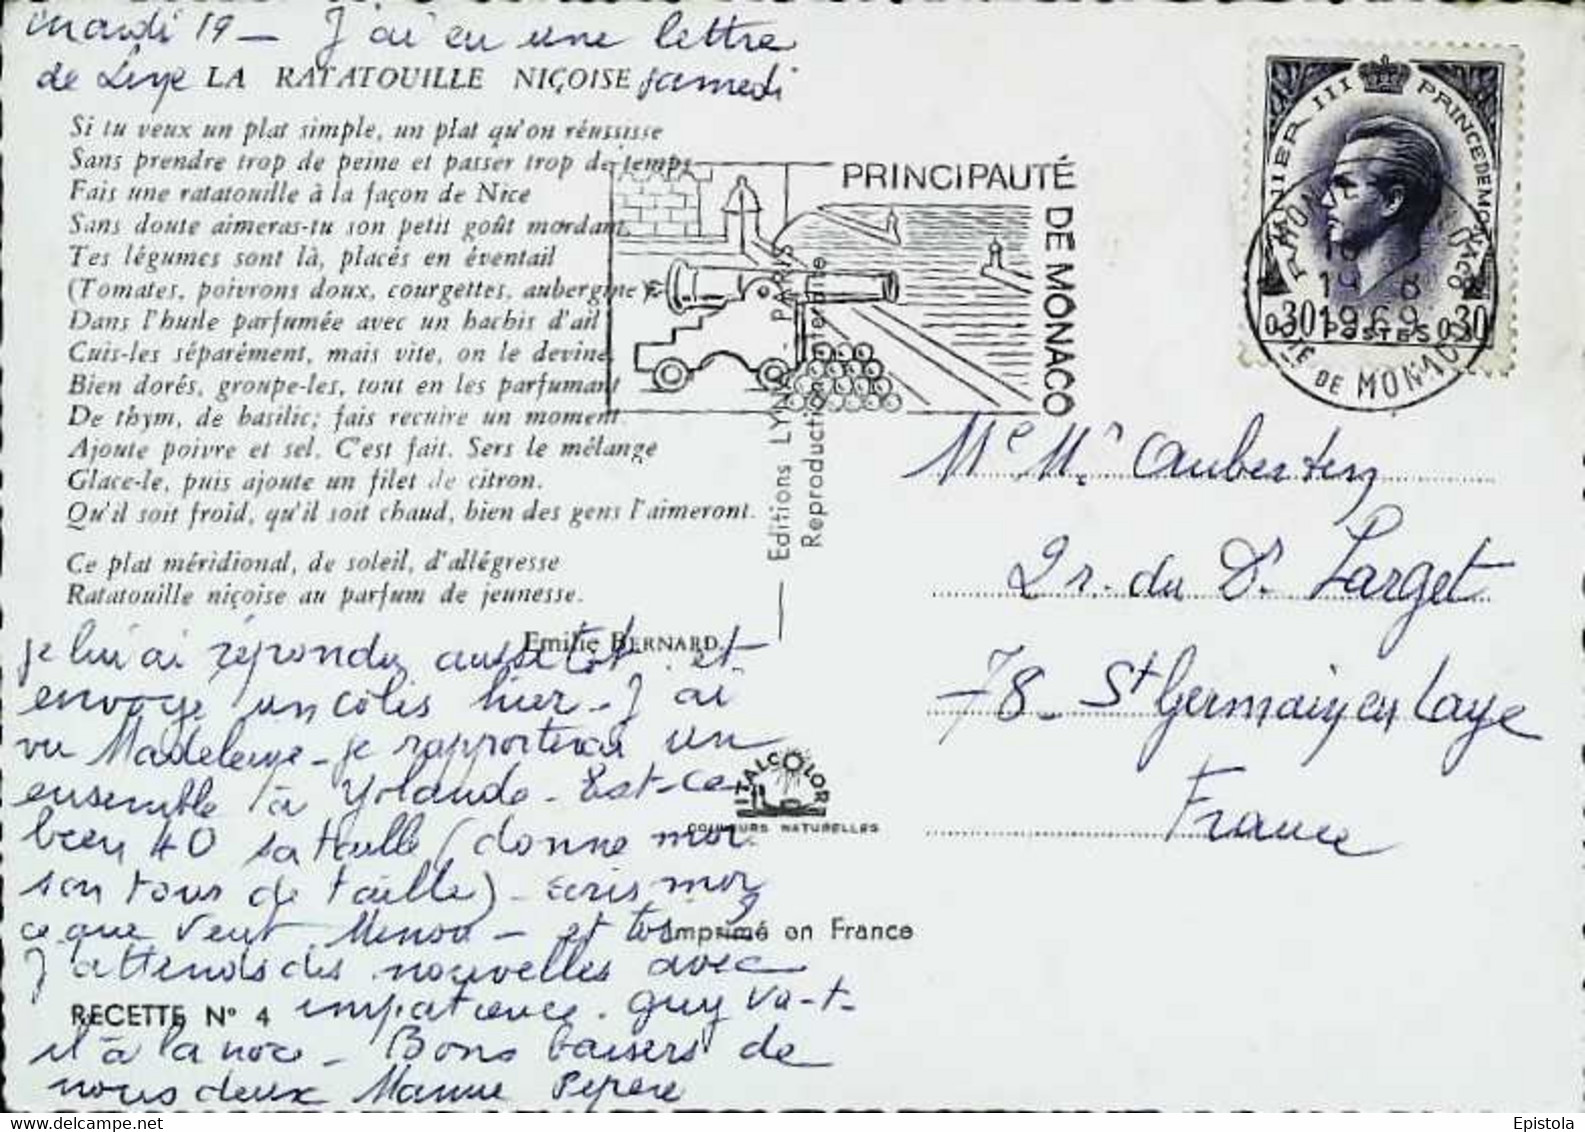 mardi 19 - J'ai eu une lettre
de Line samedi
LA RATATOUILLE NIÇOISE
Si tu veux un plat simple, un plat qu'on réussisse
Sans prendre trop de peine et passer trop de temps
Fais une ratatouille à la façon de Nice
Sans doute aimeras-tu son petit goût mordant.
Tes légumes sont là, placés en éventail
(Tomates, poivrons doux, courgettes, aubergine)
Dans l'huile parfumée avec un hachis d'ail
Cuis-les séparément, mais vite, on le devine,
Bien dorés, groupe-les, tout en les parfumant
De thym, de basilic; fais recuire un moment.
Ajoute poivre et sel. C'est fait. Sers le mélange
Glace-le, puis ajoute un filet de citron.
Qu'il soit froid, qu'il soit chaud, bien des gens l'aimeront.
Ce plat méridional, de soleil, d'allégresse
Ratatouille niçoise au parfum de jeunesse.
Emilie BERNARD.
je lui ai répondu aussitôt et
envoye un colis hier - J'ai
vu Madeleine - je rapporterai un
ensemble à Yolande - Est-ce
bien 40 sa taille (donne moi
son tour de taille) - écris moi
ce que veut Minou - et toi ?
J'attends des nouvelles avec
impatience. Guy va-t-
il à la noce - Bons baisers de
nous deux Manne Pepere
RECETTE N° 4
Editions LYNA - PARIS
Reproduction interdite
ITALCOLOR
COULEURS NATURELLES
Imprimé en France
PRINCIPAUTÉ
DE MONACO
RAINIER III PRINCE DE MONACO
0,30 POSTES 0,30
19 8
1969
PTÉ DE MONACO
Me Mr Aubertin
2 r. du Dr Larget
78 - St Germain en Laye
France
Epistola